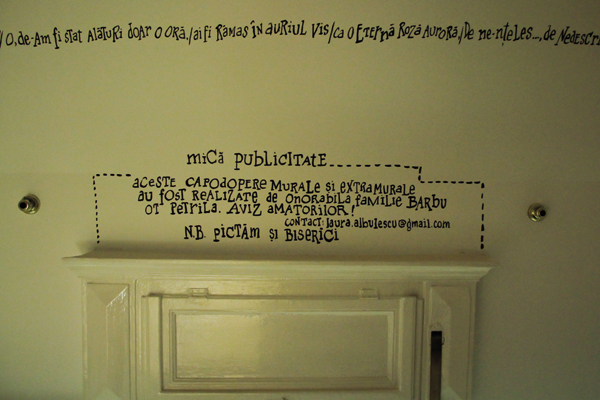 / O, de-Am fi stat ALĂTURI DOAR O ORĂ,/ai fi RĂMAS în AURIUL VIS/CA O ETERNĂ ROZĂ AURORĂ,/De ne-nțeles..., de NEDESCRI
mică PUBLICITATE
ACESTE CAPODOPERE MURALE și EXTRAMURALE
AU FOST REALIZATE de ONORABILA FAMILIE BARBU
OT PETRILA. AVIZ AMATORILOR!
CONTACT: laura.albulescu@gmail.com
N.B. PICTĂM și BISERICI